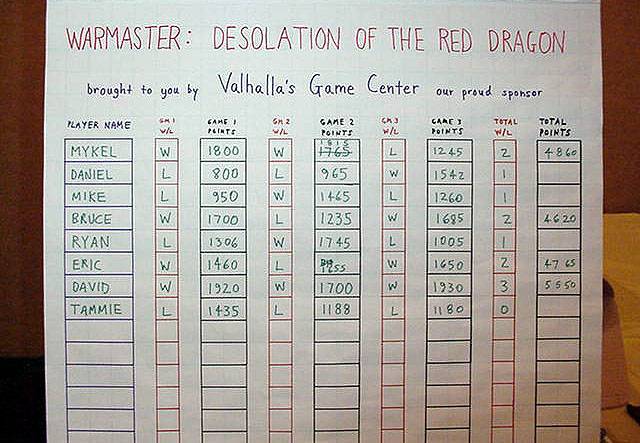 WARMASTER: DESOLATION OF THE RED DRAGON
brought to you by Valhalla's Game Center our proud sponsor
PLAYER NAME GM 1 W/L GAME 1 POINTS GM 2 W/L GAME 2 POINTS GM 3 W/L GAME 3 POINTS TOTAL W/L TOTAL POINTS
MYKEL W 1800 W 1815 1765 L 1245 2 4860
DANIEL L 800 L 965 W 1542 1
MIKE L 950 W 1465 L 1260 1
BRUCE W 1700 L 1235 W 1685 2 4620
RYAN L 1306 W 1745 L 1005 1
ERIC W 1460 L 1655 W 1650 2 4765
DAVID W 1920 W 1700 W 1930 3 5550
TAMMIE L 1435 L 1188 L 1180 0